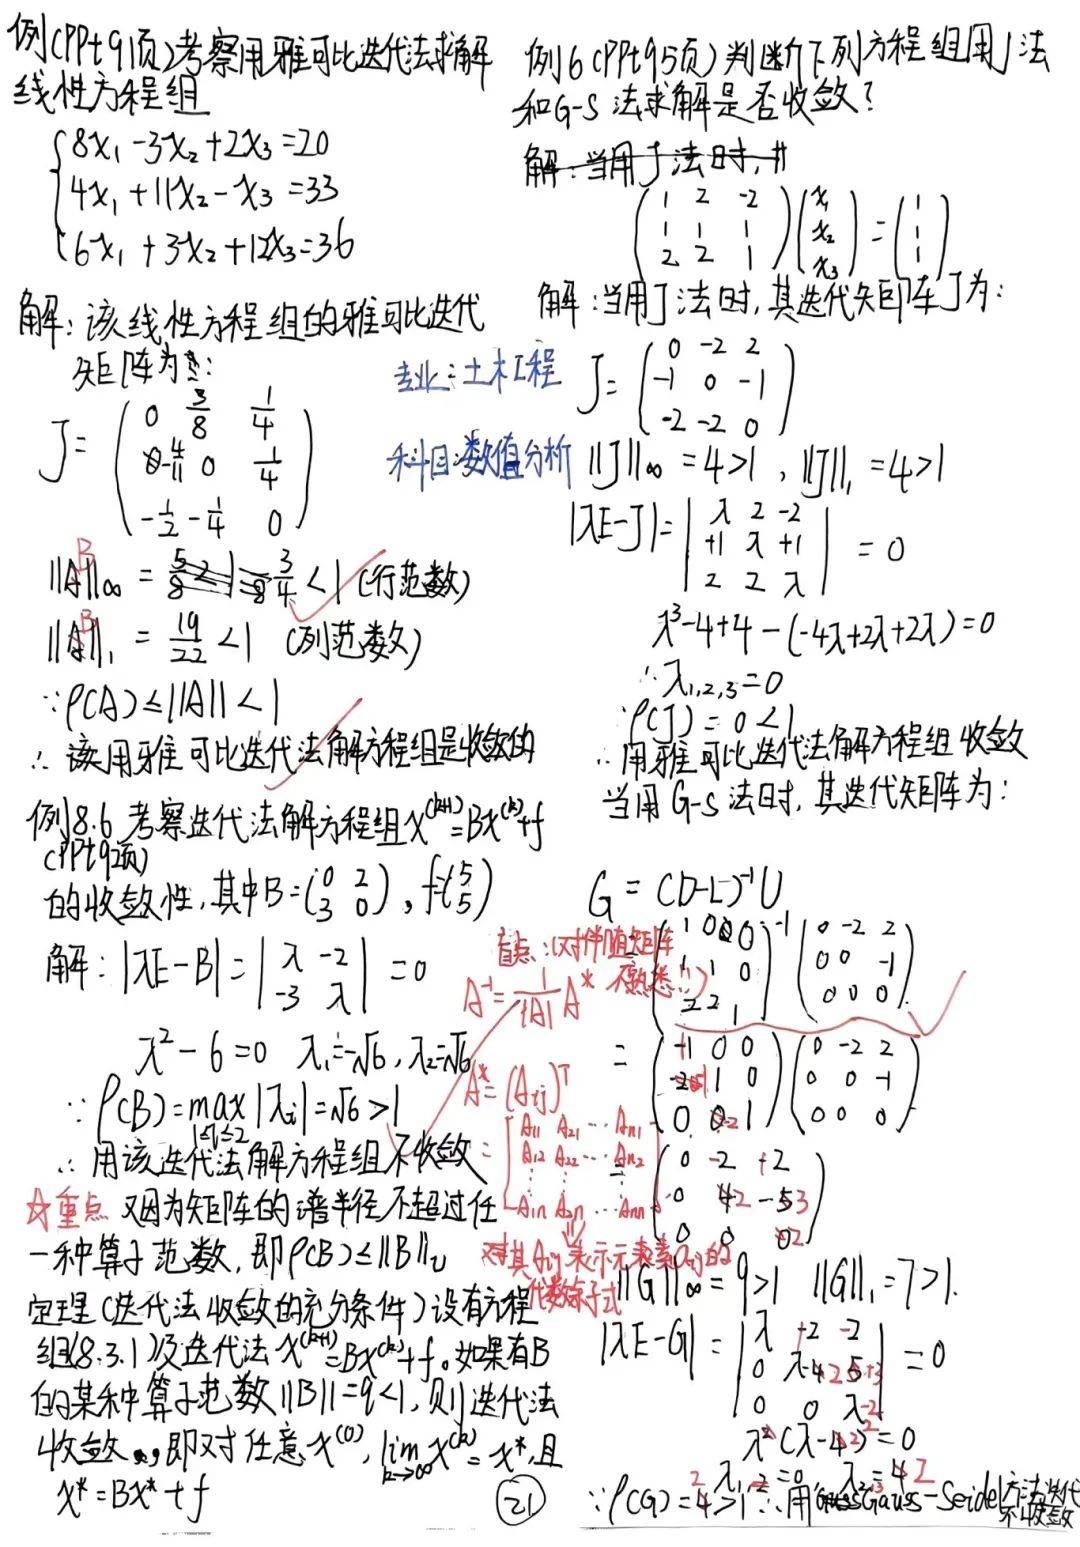 例(PPt91页)考察用雅可比迭代法求解
线性方程组
8x₁-3x₂+2x₃=20
4x₁+11x₂-x₃=33
6x₁+3x₂+12x₃=36
解:该线性方程组的雅可比迭代
矩阵为:
J= ( 0 3/8 1/4
-4/11 0 1/4
-1/2 -1/4 0 )
||B||∞ = 3/4 <1 (行范数)
||B||₁ = 19/22 <1 (列范数)
∵ρ(A)≤||A||<1
∴该用雅可比迭代法解方程组是收敛的
例8.6 考察迭代法解方程组x^(k+1)=Bx^(k)+f
(PPt92页)
的收敛性,其中B=(0 2
3 0), f=(5
5)
解:|λE-B|=| λ -2
-3 λ |=0
λ²-6=0 λ₁=-√6,λ₂=√6
∵ρ(B)=max|λi|=√6>1
1≤i≤2
∴用该迭代法解方程组不收敛
☆重点 又因为矩阵的谱半径不超过任
一种算子范数,即ρ(B)≤||B||υ
定理(迭代法收敛的充分条件)设有方程
组(8.3.1)及迭代法x^(k+1)=Bx^(k)+f。如果有B
的某种算子范数||B||=q<1,则迭代法
收敛,即对任意x^(0), lim x^(k)=x*,且
k→∞
x*=Bx*+f
专业:土木工程
科目:数值分析
例6(PPt95页)判断下列方程组用J法
和G-S法求解是否收敛?
解:当用J法时,
( 1 2 -2
1 1 1
2 2 1 ) ( x₁
x₂
x₃ ) = ( 1
1
1 )
解:当用J法时,其迭代矩阵J为:
J= ( 0 -2 2
-1 0 -1
-2 -2 0 )
||J||∞=4>1,||J||₁=4>1
|λE-J|=| λ 2 -2
+1 λ +1
2 2 λ | =0
λ³-4+4-(-4λ+2λ+2λ)=0
∴λ₁,₂,₃=0
ρ(J)=0<1
∴用雅可比迭代法解方程组收敛
当用G-S法时,其迭代矩阵为:
G=(D-L)⁻¹U
= ( 1 0 0
1 1 0
2 2 1 )⁻¹ ( 0 -2 2
0 0 -1
0 0 0 )
= ( 1 0 0
-1 1 0
0 -2 1 ) ( 0 -2 2
0 0 -1
0 0 0 )
= ( 0 -2 +2
0 2 -3
0 0 2 )
盲点:(对伴随矩阵
不熟悉!!)
A⁻¹=1/|A| A*
A*=(Aij)ᵀ
= [ A₁₁ A₂₁ … An₁
A₁₂ A₂₂ … An₂
⋮ ⋮ ⋮
A₁n A₂n … Ann ]
对其Aij表示元素aij的
代数余子式
||G||∞=9>1 ||G||₁=7>1.
|λE-G|=| λ +2 -2
0 λ-2 +3
0 0 λ-2 | =0
λ(λ-2)²=0
λ₁=0 λ₂,₃=2
∵ρ(G)=2>1 ∴用Gauss-Seidel方法迭代
不收敛
21